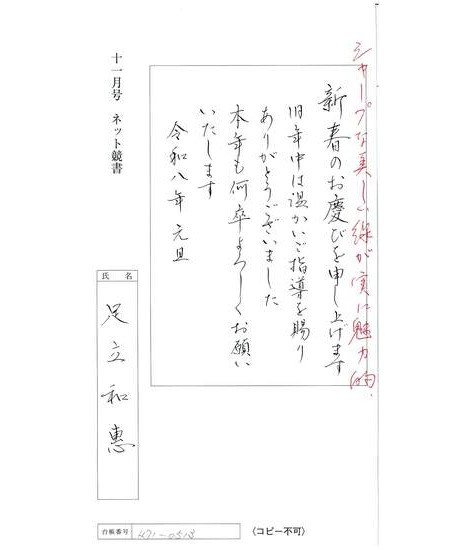 シャープな美しい線が実に魅力的.
新春のお慶びを申し上げます
旧年中は温かいご指導を賜り
ありがとうございました
本年も何卒よろしくお願い
いたします
令和八年 元旦
十一月号 ネット競書
氏 名
足立和恵
台帳番号
471-0518
〈コピー不可〉